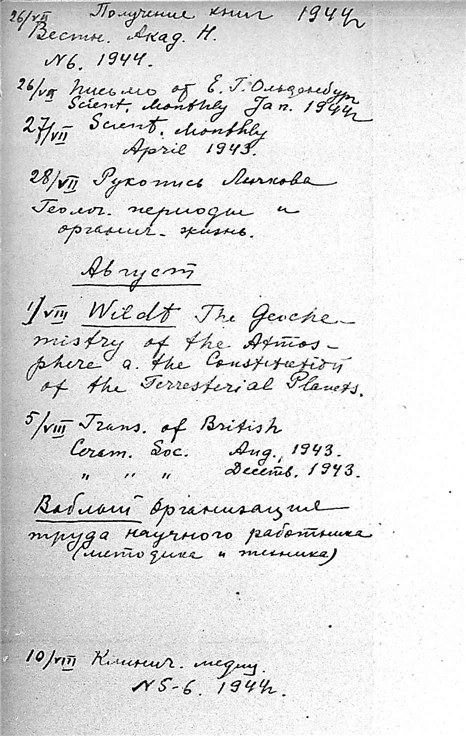 26/VII Получение книг 1944г
Вестн. Акад. Н.
N6. 1944.
26/VII письмо от Е. Г. Ольденбург
Scient. Monthly Jan. 1944г
27/VII Scient. Monthly
April 1943.
28/VII Рукопись Личкова
Геолог. периоды и
органич. жизнь.
Август
1/VIII Wildt The Geoche-
mistry of the Atmos-
phere a. the Constitution
of the Terresterial Planets.
5/VIII Trans. of British
Ceram. Soc. Aug., 1943.
" " " Decemb. 1943.
Воблый Организация
труда научного работника
(методика и техника)
10/VIII Клинич. медиц.
N5-6. 1944г.